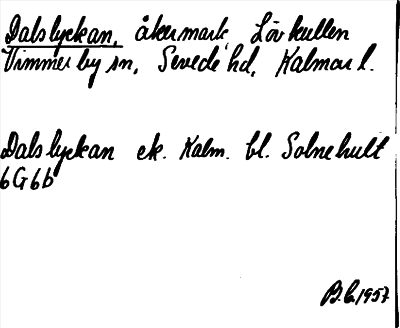 Dalslyckan, åkermark, Lövkullen
Vimmerby sn, Sevede hd, Kalmar l.
Dalslyckan ek. Kalm. bl. Solnehult
6G6b
B.L. 1957